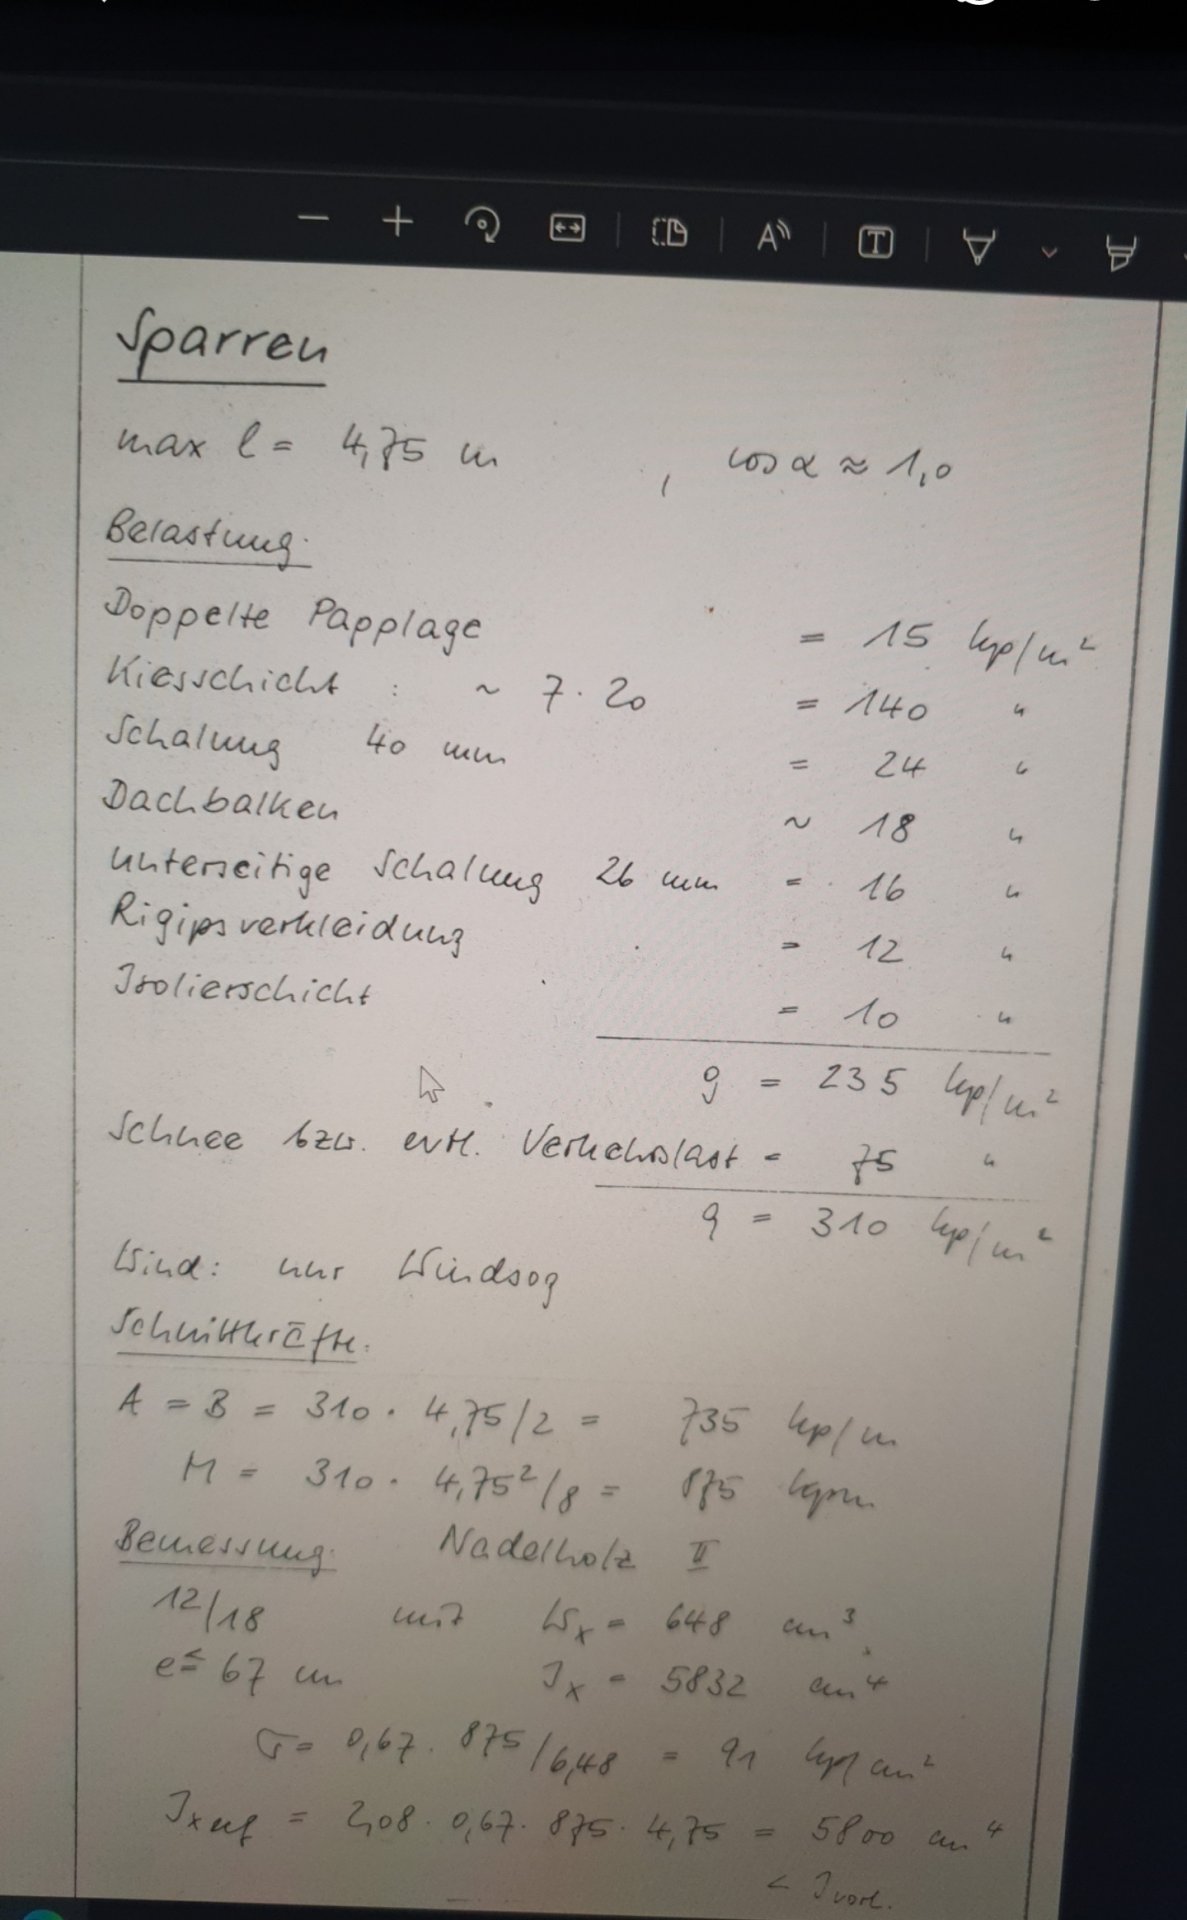 Sparren
max l = 4,75 m , cos α ≈ 1,0
Belastung:
Doppelte Papplage = 15 kp/m²
Kiesschicht : ~ 7 · 20 = 140 "
Schalung 40 mm = 24 "
Dachbalken ~ 18 "
unterseitige Schalung 26 mm = 16 "
Rigipsverkleidung = 12 "
Isolierschicht = 10 "
g = 235 kp/m²
Schnee bzw. evtl. Verkehrslast = 75 "
q = 310 kp/m²
Wind: nur Windsog
Schnittkräfte:
A = B = 310 · 4,75/2 = 735 kp/m
M = 310 · 4,75²/8 = 875 kpm
Bemessung: Nadelholz II
12/18 mit Wx = 648 cm³
e ≤ 67 cm Jx = 5832 cm⁴
σ = 0,67 · 875/6,48 = 91 kp/cm²
Jx erf = 2,08 · 0,67 · 875 · 4,75 = 5800 cm⁴
< Jvorh.